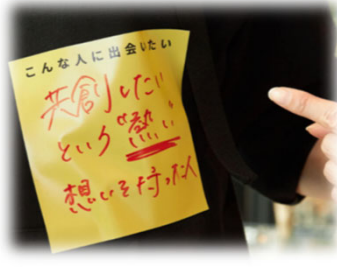 こんな人に出会いたい
共創したい
という"熱い"
想いを持った人